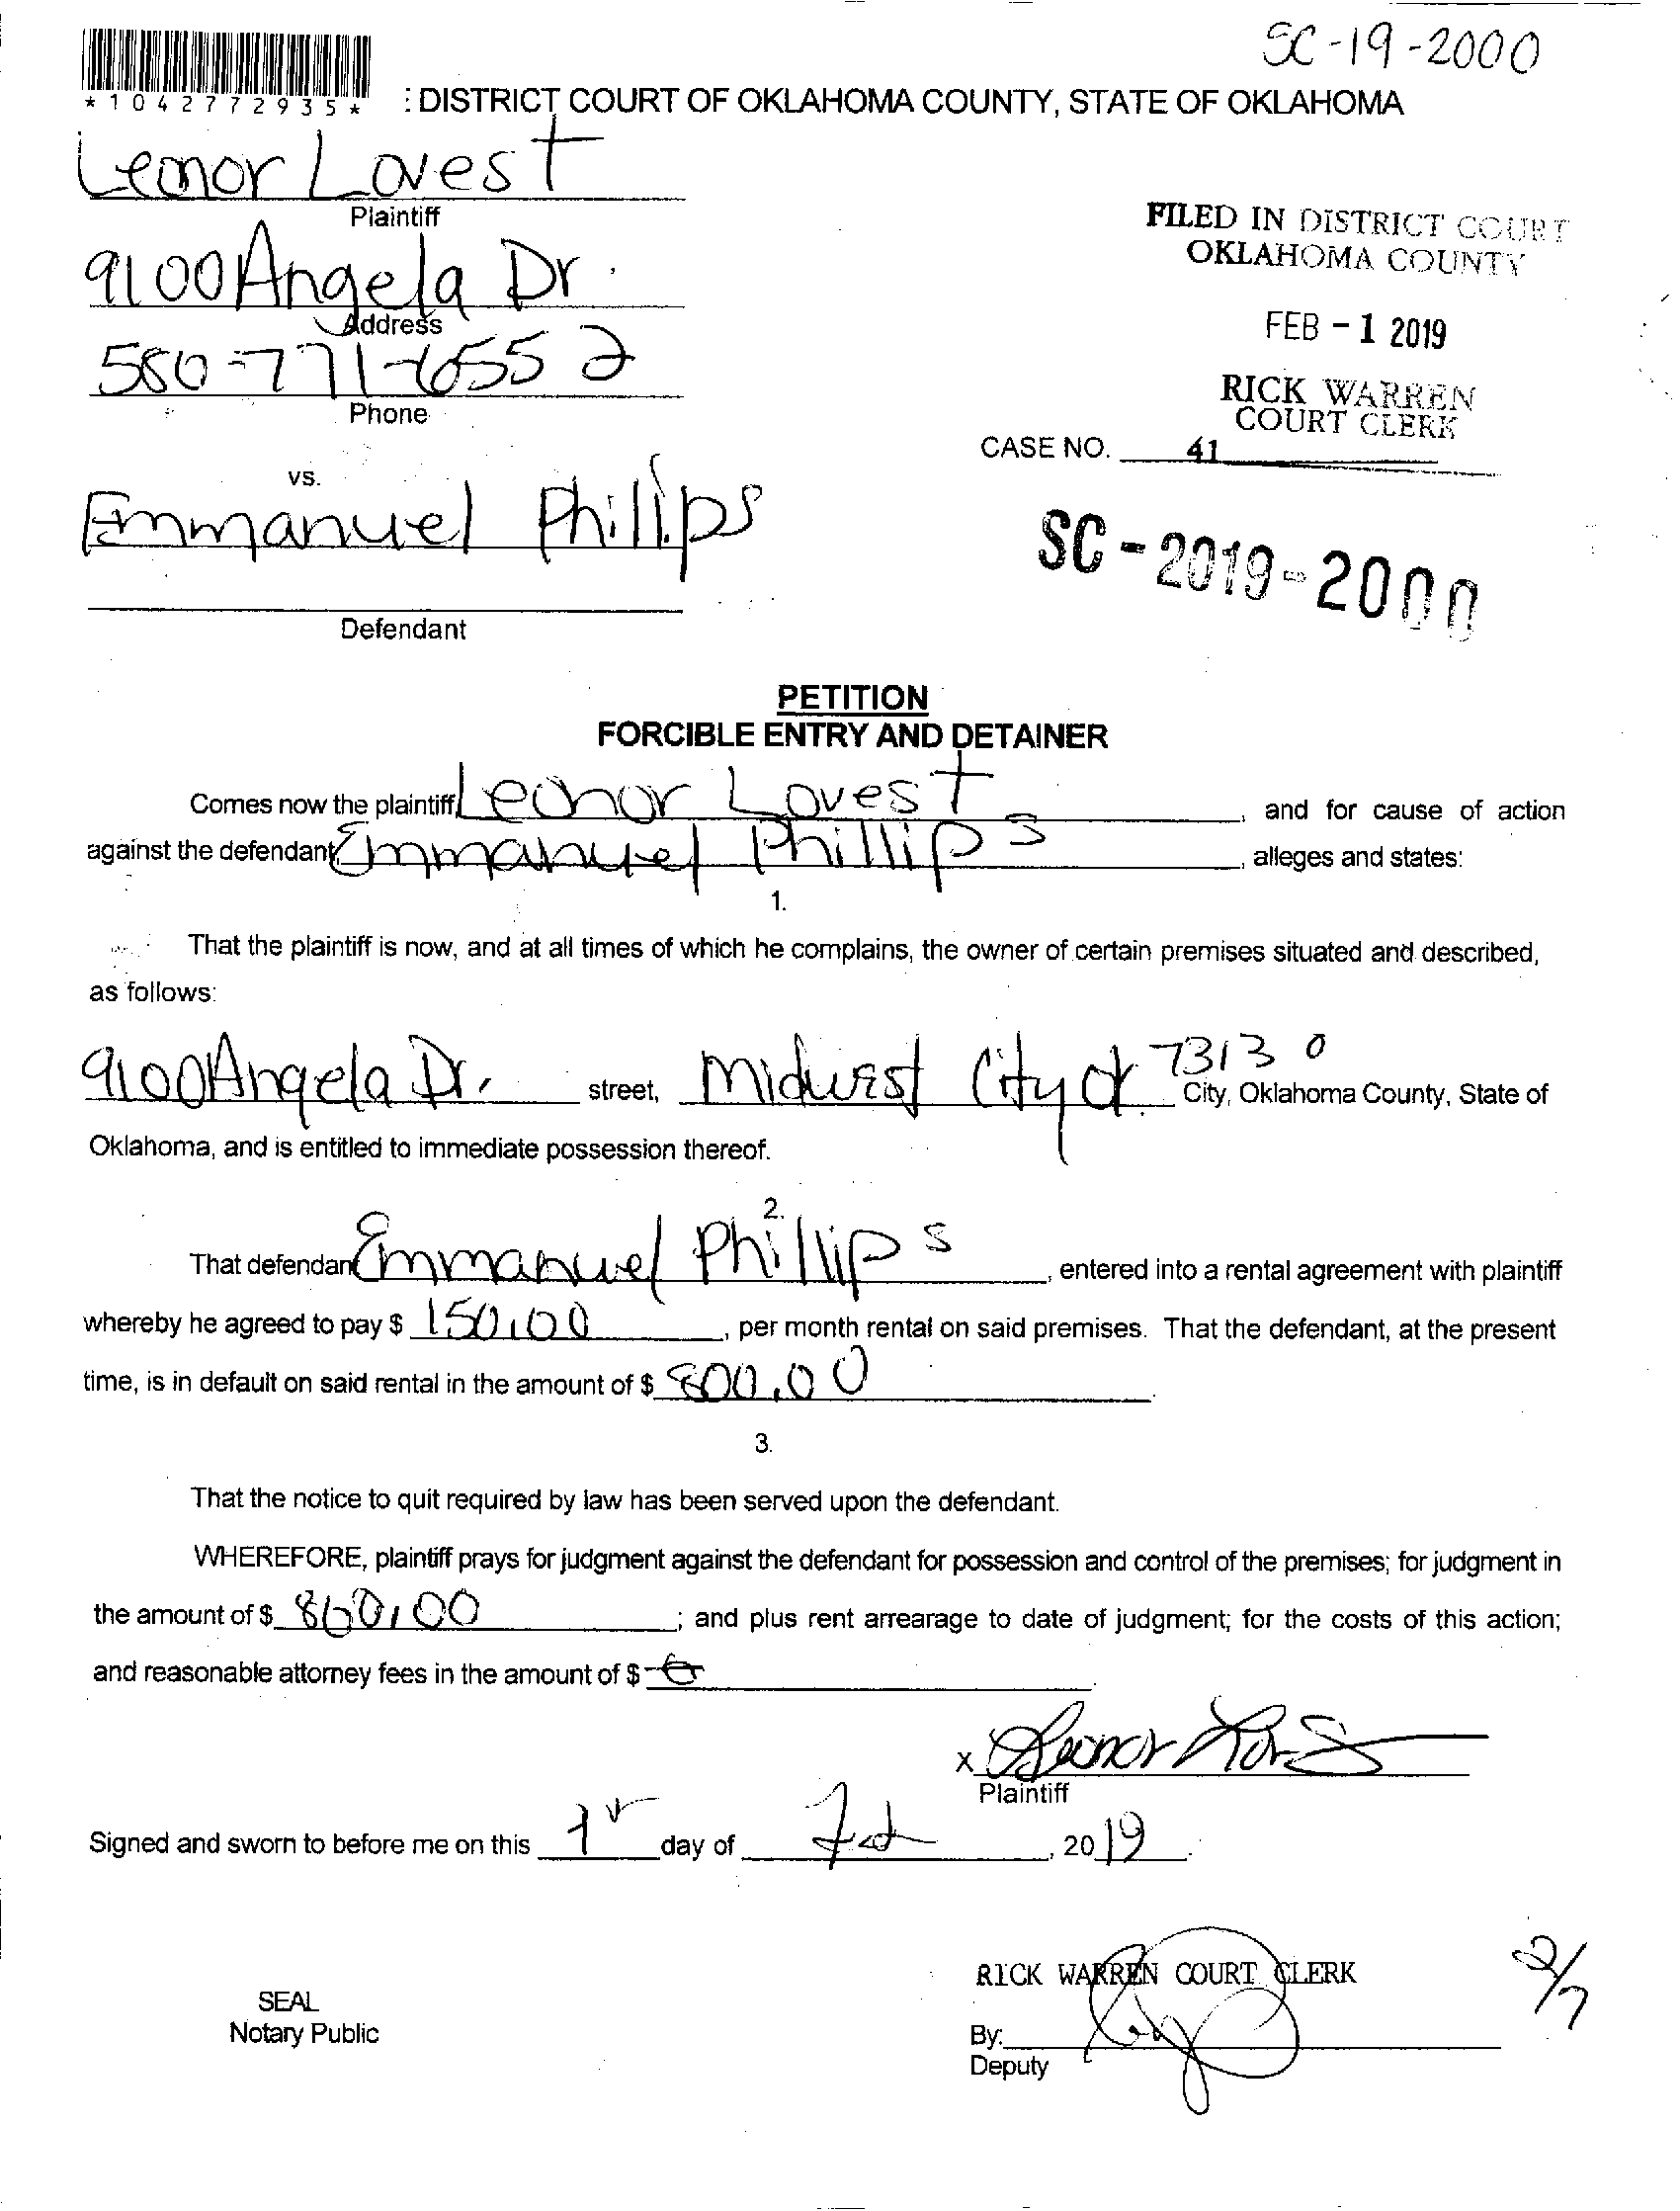 SC-19-2000
*1042772935*
: DISTRICT COURT OF OKLAHOMA COUNTY, STATE OF OKLAHOMA
Leonor Lovest
Plaintiff
FILED IN DISTRICT COURT
OKLAHOMA COUNTY
9100 Angela Dr.
Address
FEB - 1 2019
580-771-6552
Phone
RICK WARREN
COURT CLERK
CASE NO. 41
vs.
Emmanuel Phillips
SC-2019-2000
Defendant
PETITION
FORCIBLE ENTRY AND DETAINER
Comes now the plaintiff Leonor Lovest, and for cause of action
against the defendant, Emmanuel Phillips, alleges and states:
1.
That the plaintiff is now, and at all times of which he complains, the owner of certain premises situated and described,
as follows:
9100 Angela Dr. street, Midwest City ok 73130 City, Oklahoma County, State of
Oklahoma, and is entitled to immediate possession thereof.
2.
That defendant Emmanuel Phillips, entered into a rental agreement with plaintiff
whereby he agreed to pay $ 150.00, per month rental on said premises. That the defendant, at the present
time, is in default on said rental in the amount of $ 800.00.
3.
That the notice to quit required by law has been served upon the defendant.
WHEREFORE, plaintiff prays for judgment against the defendant for possession and control of the premises; for judgment in
the amount of $ 860.00; and plus rent arrearage to date of judgment; for the costs of this action;
and reasonable attorney fees in the amount of $
x Leonor
Plaintiff
Signed and sworn to before me on this 1 day of Feb, 2019.
RICK WARREN COURT CLERK
2/7
SEAL
Notary Public
By:
Deputy